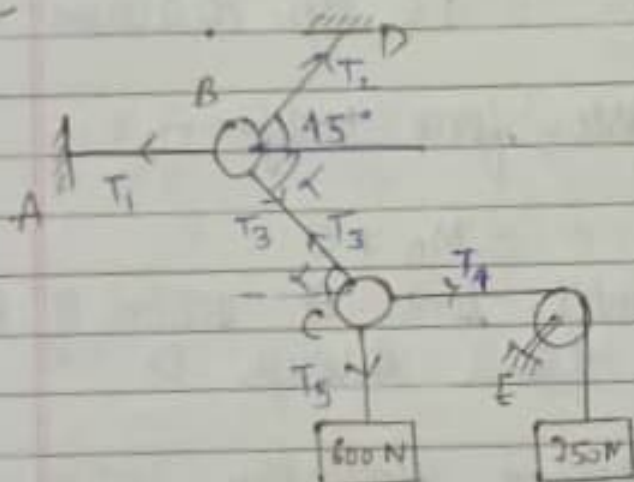 D
B T₂
45°
A T₁ α
T₃ T₃
α T₄
C
T₅ E
600N 250N